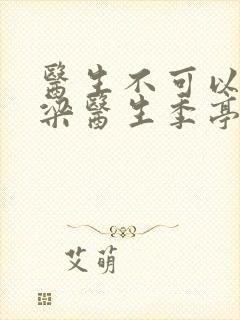 醫生不可以
梁醫生季亭
艾萌